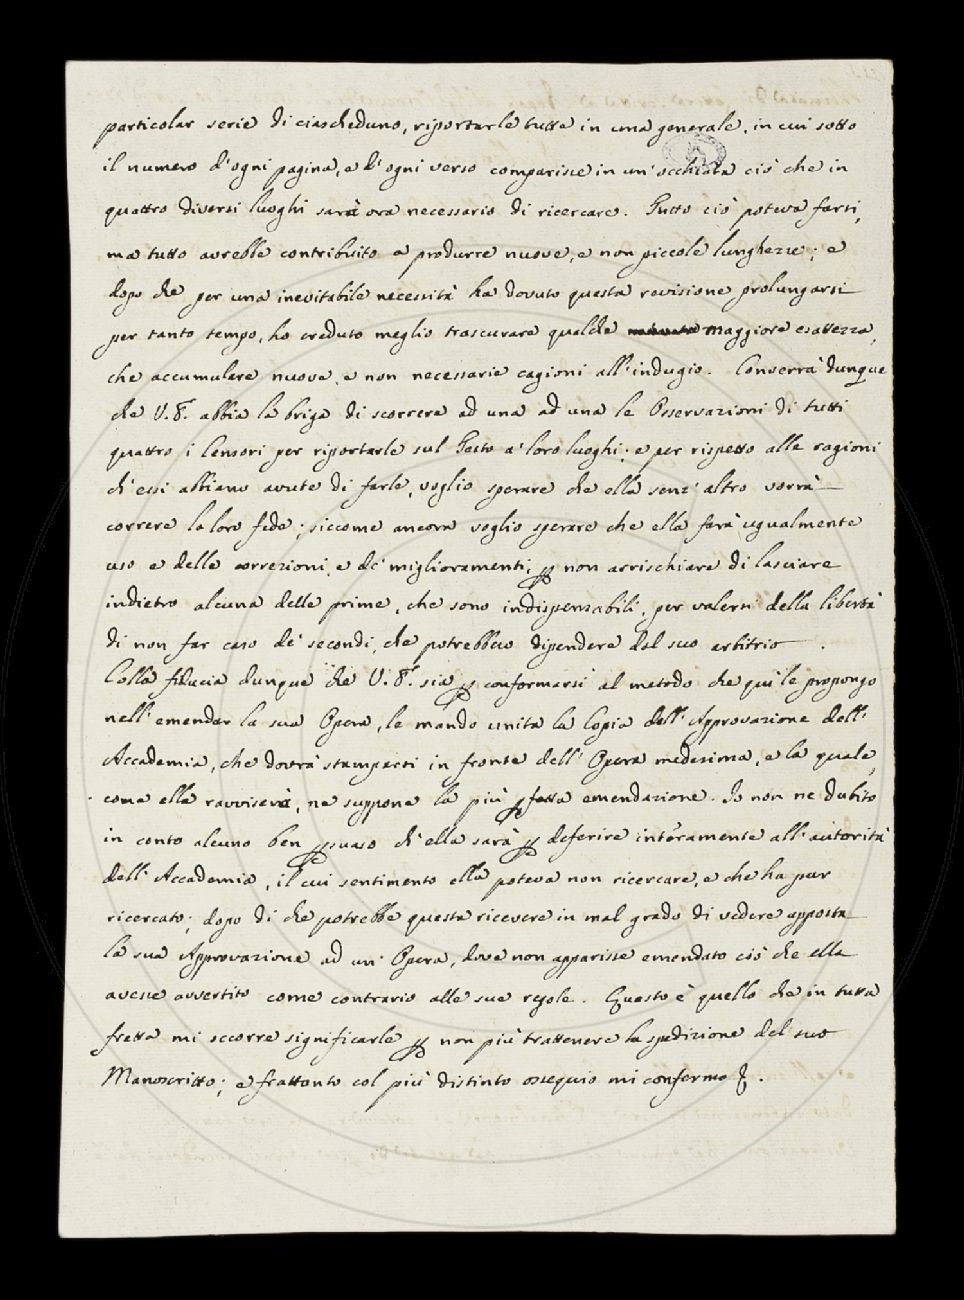 particolar serie di ciascheduno, riportarle tutte in una generale, in cui sotto
il numero d'ogni pagina, e d'ogni verso comparisse in un'occhiata ciò che in
quattro diversi luoghi sarà ora necessario di ricercare. Tutto ciò poteva farsi,
ma tutto avrebbe contribuito a produrre nuove, e non piccole lunghezze; e
dopo che per una inevitabile necessità ha dovuto questa revisione prolungarsi
per tanto tempo, ho creduto meglio trascurare qualche maggiore esattezza,
che accumulare nuove, e non necessarie cagioni all'indugio. Converrà dunque
che V. S. abbia la briga di scorrere ad una ad una le Osservazioni di tutti
quattro i Censori per riportarle sul Testo a' loro luoghi; e per rispetto alle ragioni
ch'essi abbiano avute di farle, voglio sperare che ella senz'altro vorrà
correre la loro fede; siccome ancora voglio sperare che ella farà ugualmente
uso e delle correzioni, e de' miglioramenti, p non arrischiare di lasciare
indietro alcuna delle prime, che sono indispensabili, per valersi della libertà
di non far caso de' secondi, che potrebbero dipendere dal suo arbitrio.
Colla fiducia dunque che V. S. sia p conformarsi al metodo che quì le propongo
nell'emendar la sua Opera, le mando unita la Copia dell'Approvazione dell'
Accademia, che dovrà stamparsi in fronte dell'Opera medesima, e la quale,
come ella ravviserà, ne suppone la più pfetta emendazione. Io non ne dubito
in conto alcuno ben psuaso ch'ella sarà p deferire interamente all'autorità
dell'Accademia, il cui sentimento ella poteva non ricercare, e che ha pur
ricercato; dopo di che potrebbe questa ricevere in mal grado di vedere apposta
la sua Approvazione ad un'Opera, dove non apparisse emendato ciò che ella
avesse avvertito come contrario alle sue regole. Questo è quello che in tutta
fretta mi occorre significarle p non più trattenere la spedizione del suo
Manoscritto; e frattanto col più distinto ossequio mi confermo